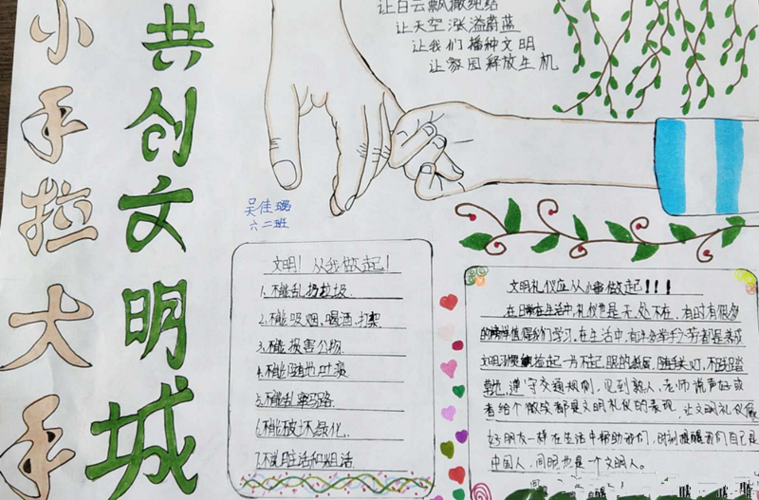 小手拉大手
共创文明城
让白云飘撒纯结
让天空涨溢蔚蓝
让我们播种文明
让家园释放生机
吴佳
六二班
文明！从我做起！
1.不能乱扔垃圾
2.不能吸烟、喝酒、打架
3.不能损害公物
4.不能随地吐痰
5.不能乱穿马路
6.不能破坏绿化
7.不说脏话和粗话
文明礼仪应从小事做起！！！
在日常生活中，礼仪可是无处不在，有时有很多
的榜样值得我们学习，在生活中，有许多举手之劳都是养成
文明习惯，捡起一片不起眼的纸屑，随手关灯，不践踏
草地，遵守交通规则，见到熟人、老师说声好或
者给个微笑都是文明礼仪的表现，让文明礼仪像
好朋友一样在生活中帮助我们，时刻提醒我们自己是
中国人，同时也是一个文明人。